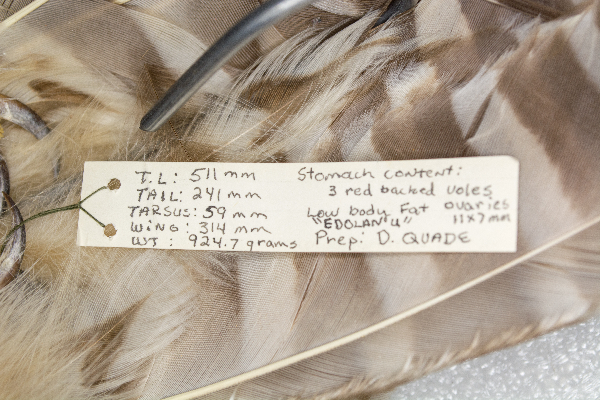 T.L: 511 mm
TAIL: 241 mm
TARSUS: 59 mm
WING: 314 mm
WT: 924.7 grams
Stomach content:
3 red backed voles
Low body Fat ovaries
"EDOLANIU" 11x7mm
Prep: D. QUADE